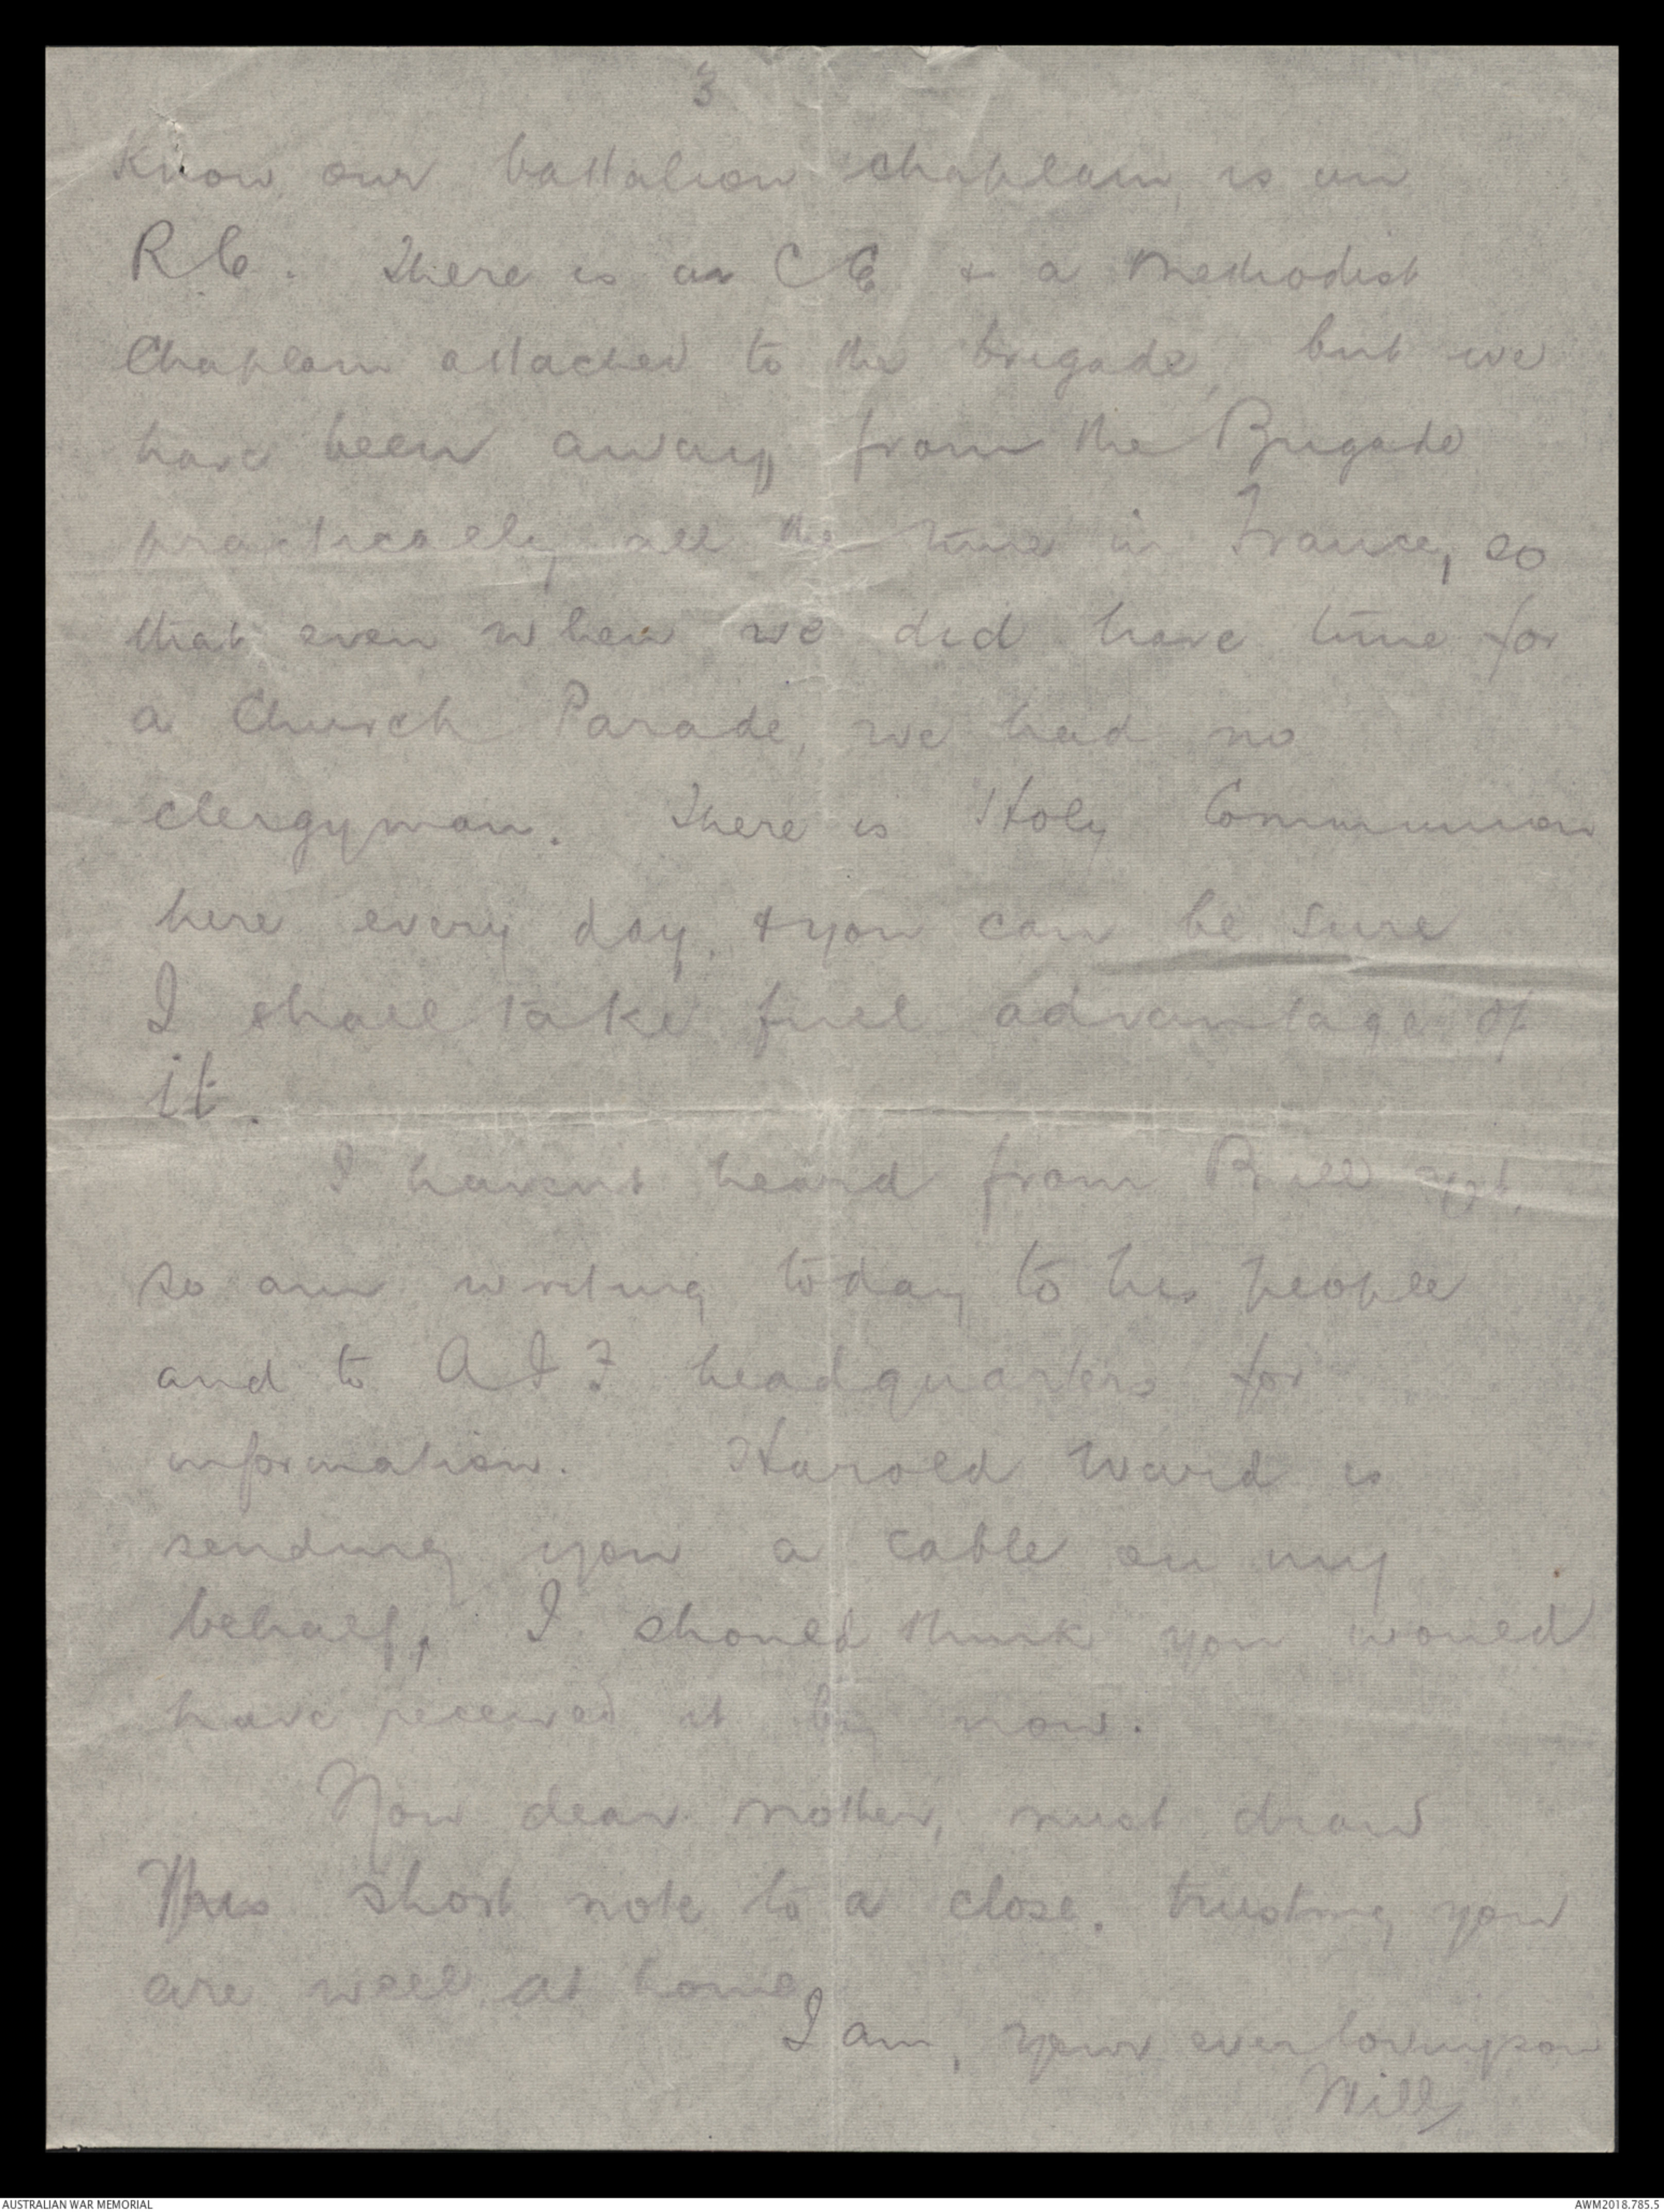 3
Know, our battalion chaplain, is an
R.C. There is an C E & a Methodist
Chaplain attached to the brigade, but we
have been away from the Brigade
practically all the time in France, so
that even when we did have time for
a Church Parade, we had no
clergyman. There is Holy Communion
here every day, & you can be sure
I shall take full advantage of
it.
I havent heard from Bill yet,
so am writing today to his people
and to A I F headquarters for
information. Harold Ward is
sending you a cable on my
behalf, I should think you would
have received it by now.
Now dear mother, must draw
this short note to a close. trusting you
are well at home
I am, your ever loving son
Will
AUSTRALIAN WAR MEMORIAL
AWM2018.785.5